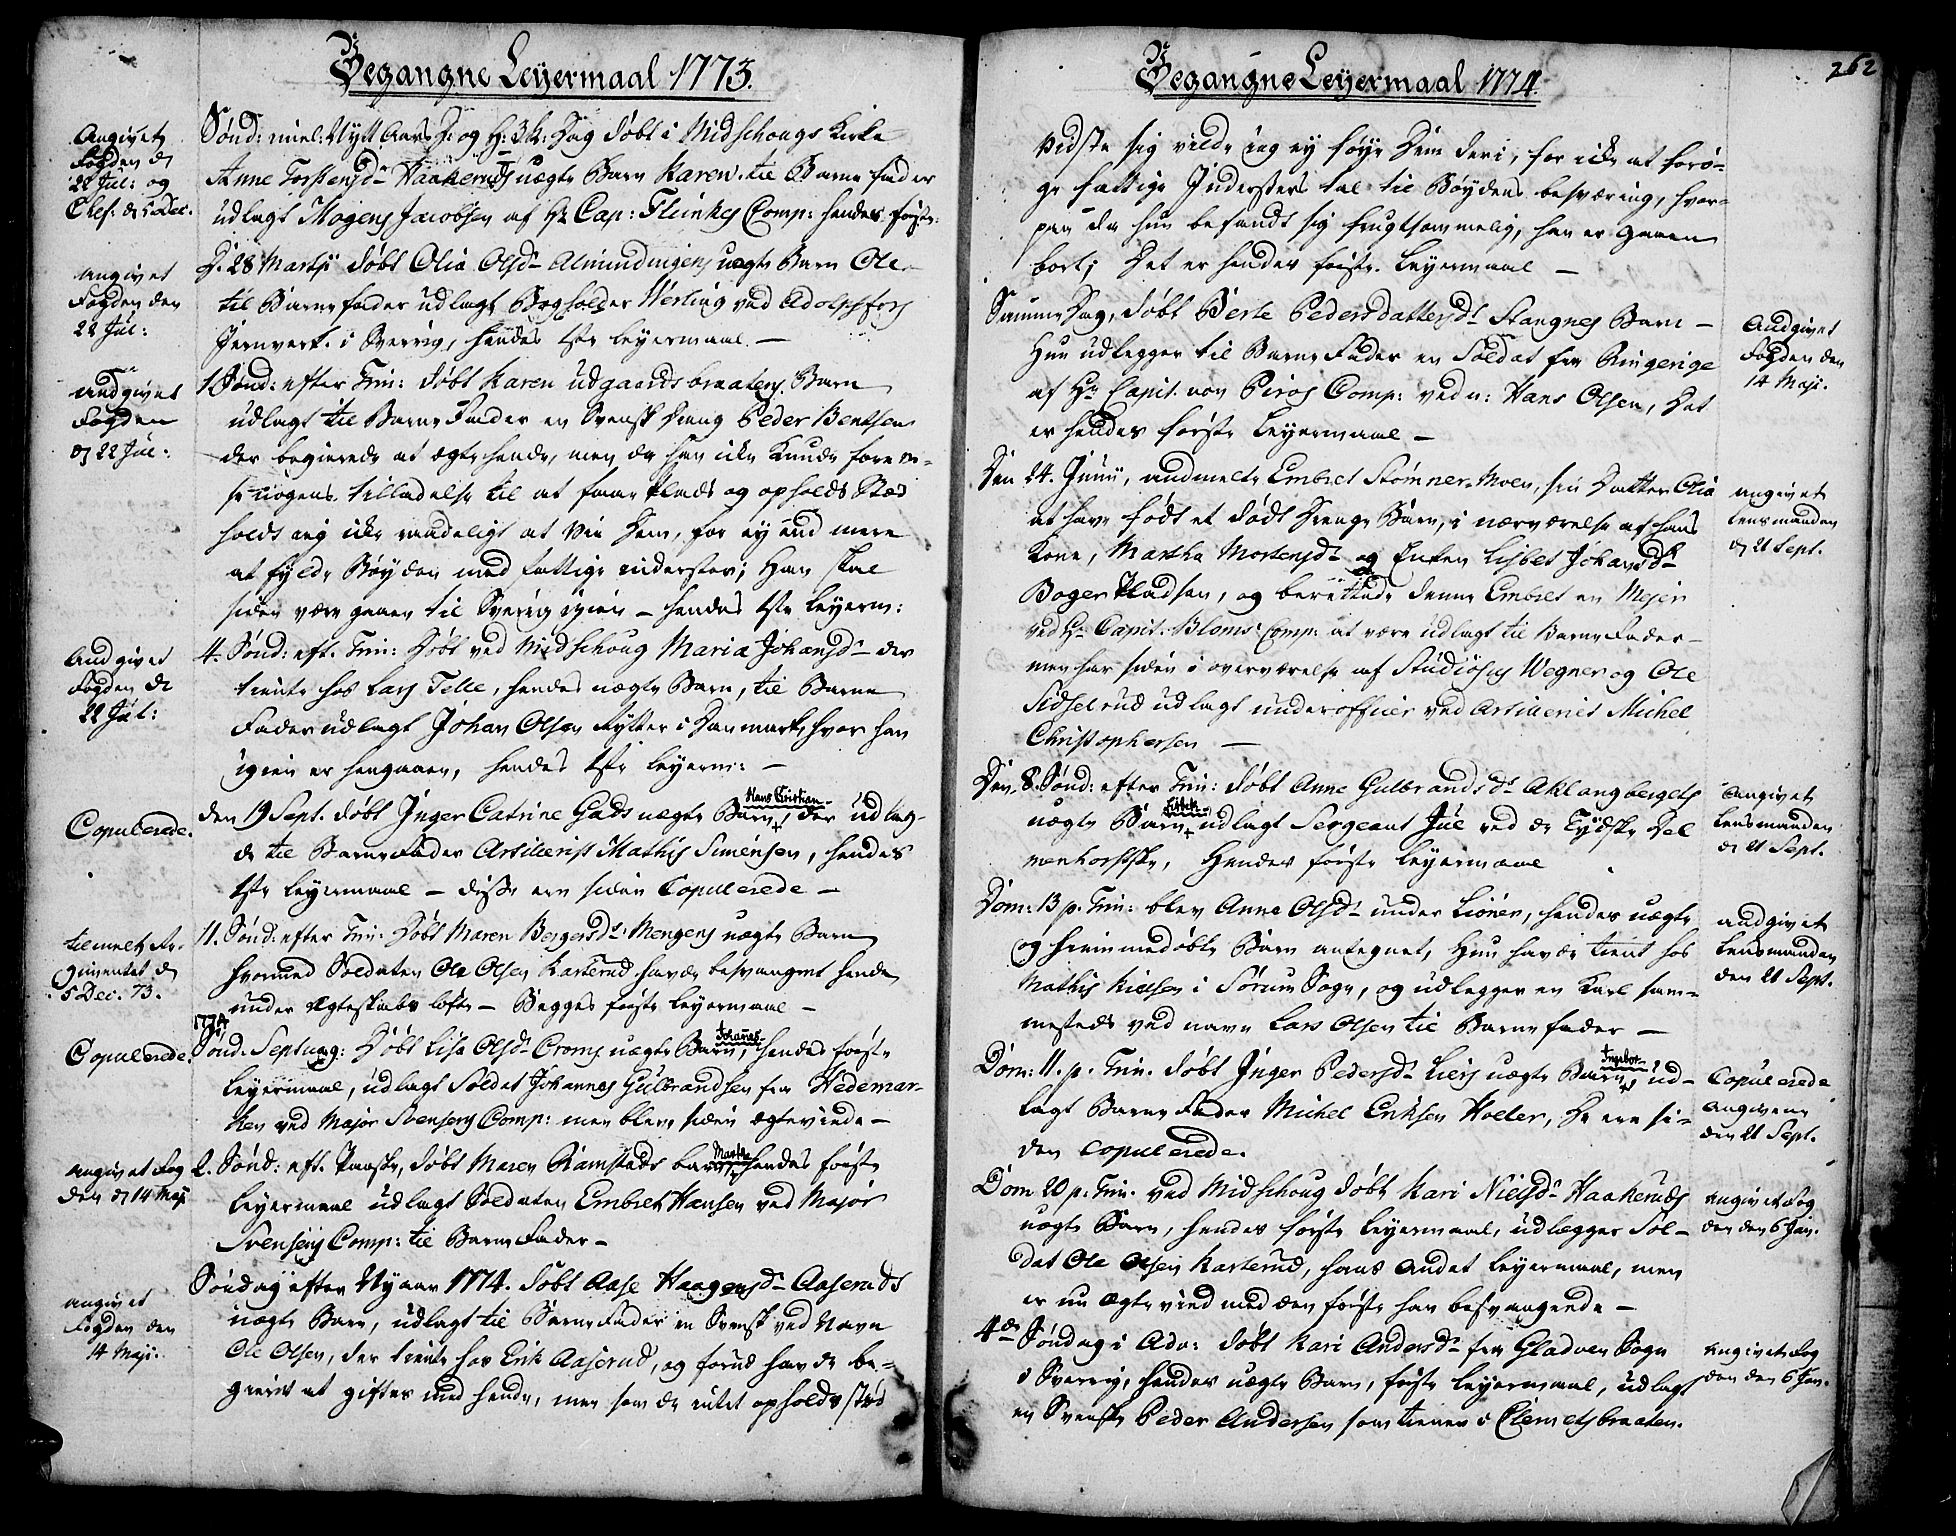 Begangne Leÿermaal 1773.
Angivet
Fogden d
22 Jul: og
Chef: d 5 Dec.
Sønd: mel: Nytt Aars D: og H: 3 K: Dag døbt i Midschougs Kirke
Anne Torstensdr Haakeruds uægte Barn Karen. til Barne fader
udlagt Mogens Jacobsen af Hr Cap: Flinkes Comp: hendes første
angivet
Fogden den
22 Jul:
D. 28 Martji døbt Olia Olsdr Almindingens uægte Barn Ole
til Barnefader udlagt Bogholder Werling ved Adolphfors
Jernverk i Sverrig, hendes 1ste leyermaal. —
andgivet
Fogden
d 22 Jul:
1 Sønd: efter Trin: døbt Karen Udgaardsbraatens Barn
udlagt til Barne Fader en Svensk Dreng Peder Bentsen
der begierede at ægte hende, men da han icke kunde forevi-
se nogens tilladelse til at faae Plads og opholds Stæd
holdt jeg icke raadeligt at vie dem, for ey end mere
at fylde Bøyden med fattige inderster; Han skal
siden være gaaen til Sverig igien — hendes 1ste leyerm:
Andgivet
Fogden d
22 Jul:
4. Sønd: eft. Trin: Døbt ved Midschoug Maria Johansdr der
tiente hos Lars Telle, hendes uægte Barn, til Barne
Fader udlagt Johan Olsen Rytter i Danmark, hvor han
igien er hengaaen, hendes 1ste leyerm: —
Copulerede.
den 19 Sept. døbt Inger Catrine Gads uægte Barn + Hans Kristian, der udlag-
de til Barne Fader Artillerist Mathis Simensen, hendes
1ste leyermaal — disse ere siden Copulerede —
tilmelt Re-
gimentet d
5 Dec. 73.
11. Sønd: efter Trin: Døbt Maren Bergersdr Mengens uægte Barn
hvormed Soldaten Ole Olsen Kasterud havde besvangret hende
under Ægteskabs løfte — Begges første leyermaal —
1774
Copulerede.
Sønd. Septuag: Døbt Lisa Olsdr Croms uægte Barn, Johannes hendes første
leyermaal, udlagt Soldat Johannes Gulbrandsen fra Hedemar-
ken ved Major Svensens Comp: men bleve siden ægteviede —
angivet Fog
den d 14 Maji
2. Sønd: eft. Paaske, døbt Maren Ramstads barn Martha hendes første
leyermaal udlagt Soldaten Embret Hansen ved Major
Svensens Comp: til Barne Fader —
angivet
Fogden den
14 Maji.
Søndag efter Nyaar 1774. døbt Aase Haagensdr Aaseruds
uægte Barn, udlagt til Barne Fader en Svensk ved Navn
Ole Olsen, der tiente hos Erik Aaserud, og forud havde be-
gieret at giftes med hende, men som de intet opholds stæd
Begangne Leÿermaal 1774.
262
vidste sig vilde jeg ey føye dem deri, for icke at forø-
ge fattige Indersters tal til Bøydens besværing, hvor-
paa da hun befandt sig frugtsommelig, han er gaaen
bort; Det er hendes første leyermaal —
Andgivet
Fogden den
14 Maji.
Samme Dag, døbt Berte Pedersdatters Stangnes Barn —
Hun udlegger til Barne Fader en Soldat fra Ringerige
af Hr Capit. von Piros Comp: ved n: Hans Olsen, Det
er hendes første leyermaal —
angivet
lensmanden
d 21 Sept.
Den 24. Junii, andmelte Embret Stømner-Moen, sin Datter Olia
at have født et dødt Drenge Barn, i nærværelse af hans
Kone, Martha Mortensdr og Enken Lisbet Johansdr
Boger Pladsen, og berettede denne Embret en Mejer
ved Hr Capit. Bloms Comp: at være udlagt til Barne Fader —
men har siden i overværelse af Studiosus Wegner og Ole
Sidselrud udlagt underofficier ved Artilleriet Michel
Christophersen —
Angivet
lensmanden
d 21 Sept.
Den 8. Sønd: efter Trin: døbt Anne Gulbrandsdr Aklangbergets
uægte Barn + Lisbet udlagt Sergeant Jul ved de Tydske Del
menhorstske, Hendes første leyermaal
andgivet
lensmanden
den 21 Sept.
Dom: 13 p. Trin: blev Anne Olsdr under Lionen, hendes uægte
og hiemmedøbte Barn antegnet, Hun havde tient hos
Mathis Nielsen i Sørum Sogn, og udlegger en Karl sam-
mesteds ved navn Lars Olsen til Barne fader —
Copulerede
Angivene
den 21 Sept.
Dom: 11. p. Trin. døbt Inger Pedersdr Liers uægte Barn + Ingebor ud-
lagt Barne Fader Michel Eriksen Holter, De ere si-
den copulerede.
angivet Fog
den den 6 Jan.
Dom 20 p. Trin. ved Midschoug døbt Kari Nielsdr Haakeruds
uægte Barn, hendes første leyermaal, udlægger Sol-
dat Ole Olsen Kasterud, hans Andet leyermaal, men
er nu ægteviend med den første han besvangrede —
angivet Fog
den den 6 Jan.
4de Søndag i Adv: døbt Kari Andersdr fra Gladven Sogn
i Sverrig, hendes uægte Barn, første leyermaal, udlagt
en Svenske Peder Andersen som tiener i Clemetsbraaten.